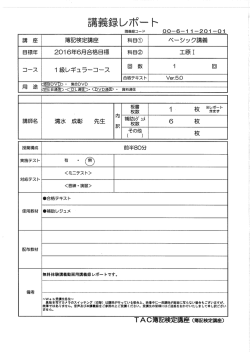 講義録レポート
講義録コード 00-6-11-201-01
講 座 簿記検定講座 科目① ベーシック講義
目標年 2016年6月合格目標 科目② 工原Ⅰ
コース 1級レギュラーコース 回 数 1 回
合格テキスト Ver.6.0
用 途
講師名 清水 成彰 先生 内訳 板書枚数 1 枚 ※レポート含まず
補助レジュメ枚数 6 枚
その他 枚
授業構成 前半80分
実施テスト 有・無
対応テスト <ミニテスト>
<答練・演習>
使用教材 ●合格テキスト
●補助レジュメ
配布教材
備考 無料体験講義動画用講義録レポートです。
TAC簿記検定講座(簿記検定講座)